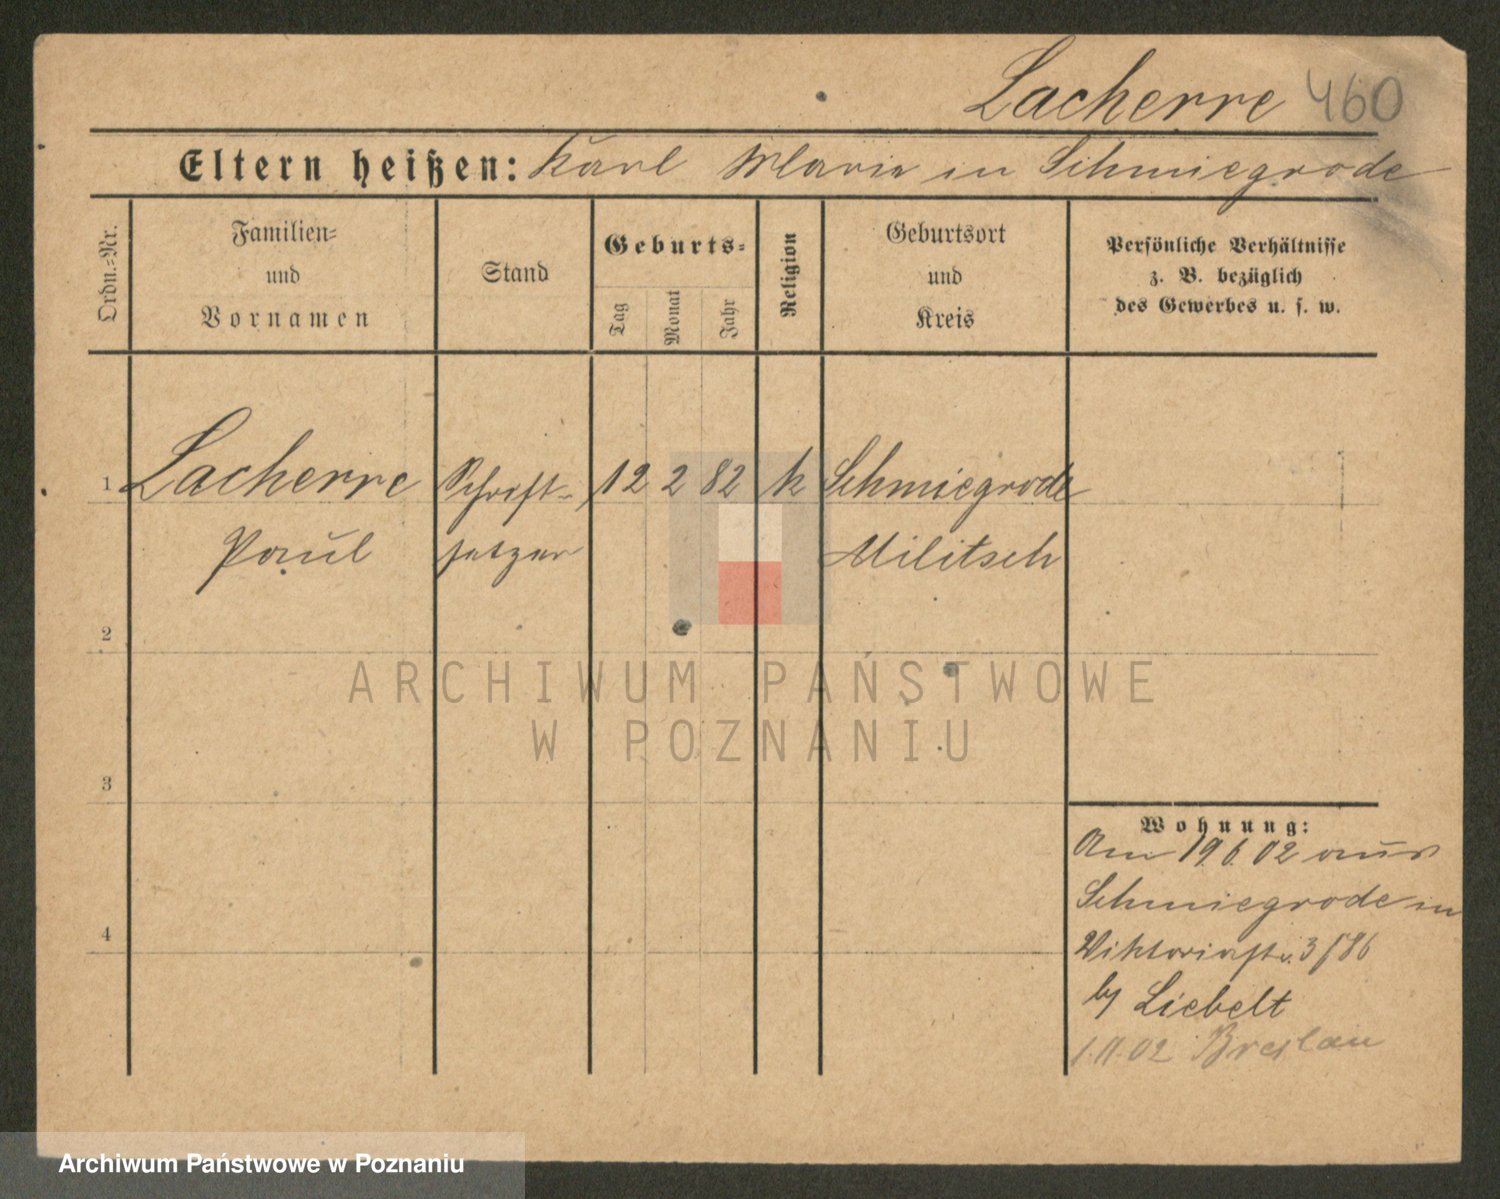 Lacherre 460
Eltern heißen: Karl Marie in Schmiegrode
Ordn.-Nr.
Familien-
und
Vornamen
Stand
Geburts-
Tag
Monat
Jahr
Religion
Geburtsort
und
Kreis
Persönliche Verhältnisse
z. B. bezüglich
des Gewerbes u. s. w.
1 Lacherre Schrift- 12 2 82 k Schmiegrode
Paul setzer Militsch
2
ARCHIWUM PAŃSTWOWE
W POZNANIU
3
Wohnung:
Am 19.6.02 aus
Schmiegrode in
4
Viktoriastr. 3/86
by Liebelt
1.11.02 Breslau
Archiwum Państwowe w Poznaniu